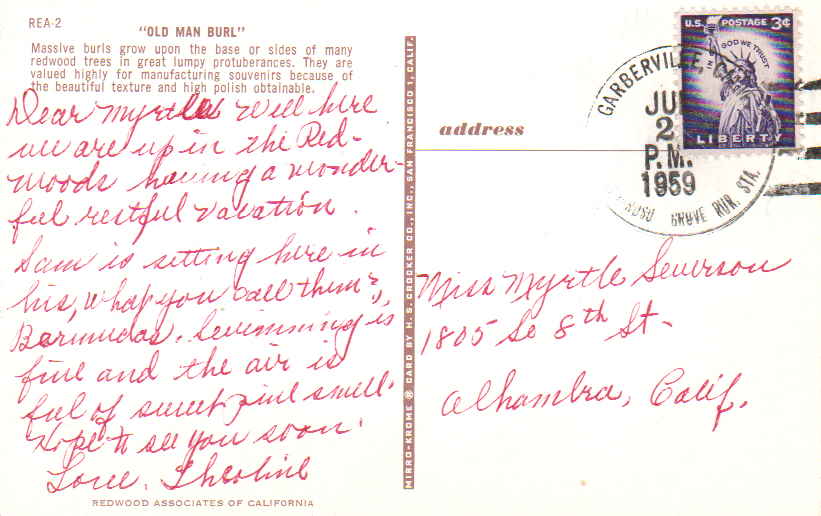 REA-2
"OLD MAN BURL"
Massive burls grow upon the base or sides of many
redwood trees in great lumpy protuberances. They are
valued highly for manufacturing souvenirs because of
the beautiful texture and high polish obtainable.
Dear Myrtle Well here
we are up in the Red-
woods having a wonder-
ful restful vacation.
Sam is setting here in
his, what you call them?,
Barmudas. Swimming is
fine and the air is
ful of sweet pine smell.
Hope to see you soon.
Love, Theoline
REDWOOD ASSOCIATES OF CALIFORNIA
MIRRO-KROME ® CARD BY H. S. CROCKER CO., INC., SAN FRANCISCO 1, CALIF.
address
U.S. POSTAGE 3¢
IN GOD WE TRUST
LIBERTY
GARBERVILLE, CA
JUL
2
P.M.
1959
GROVE RUR. STA.
Miss Myrtle Severson
1805 So 8th St.
Alhambra, Calif.